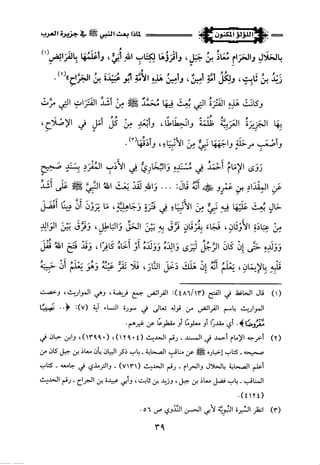 اللؤلؤ المكنون
لماذا بعث النبي ﷺ في جزيرة العرب
بالحلال والحرام مُعاذُ بنُ جَبَلٍ، وأقْرَؤُها لكتابِ اللهِ أُبَيٌّ، وأعْلَمُها بالفَرائِضِ(١)
زيدُ بنُ ثابِتٍ، ولِكُلِّ أمَّةٍ أمينٌ، وأمينُ هذِهِ الأُمَّةِ أبُو عُبَيْدَةَ بنُ الجَرَّاحِ»(٢).
وكانَتْ هذِهِ الفَتْرَةُ التي بُعِثَ فيها مُحَمَّدٌ ﷺ مِنْ أشَدِّ الفَتَراتِ التي مرَّتْ
بها الجزيرَةُ العَرَبِيَّةُ ظُلْمَةً وانْحِطاطًا، وأبْعَدِ مِنْ كُلِّ أمَلٍ في الإصْلاحِ،
وأصْعَبِ مَرْحَلَةٍ واجَهَها نَبِيٌّ مِنَ الأنْبِياءِ، وأدَقِّها(٣).
رَوَى الإمامُ أحمدُ في مُسْنَدِهِ والبُخارِيُّ في الأدَبِ المُفْرَدِ بِسَنَدٍ صَحيحٍ
عَنِ المِقْدادِ بنِ عَمْرٍو ﷺ أنَّهُ قالَ: ... واللهِ لَقَدْ بَعَثَ اللهُ النَّبِيَّ ﷺ عَلَى أشَدِّ
حالٍ بُعِثَ عَلَيْها فيهِ نَبِيٌّ مِنَ الأنْبِياءِ في فَتْرَةٍ وَجاهِلِيَّةٍ، ما يَرَوْنَ أنَّ دِينًا أفْضَلَ
مِنْ عِبادَةِ الأوْثانِ، فَجاءَ بِفُرْقانٍ فَرَقَ بِهِ بَيْنَ الحَقِّ والباطِلِ، وفَرَّقَ بَيْنَ الوالِدِ
وَوَلَدِهِ حَتَّى إنْ كانَ الرَّجُلُ لَيَرَى والِدَهُ وَوَلَدَهُ أوْ أخاهُ كافِرًا، وَقَدْ فَتَحَ اللهُ قُفْلَ
قَلْبِهِ بالإيمانِ، يَعْلَمُ أنَّهُ إنْ هَلَكَ دَخَلَ النَّارَ، فَلا تَقَرُّ عَيْنُهُ وَهُوَ يَعْلَمُ أنَّ حَبِيبَهُ
(١) قال الحافظ في الفتح (٤٨٦/١٣): الفرائض جمع فريضة، وهي المواريث، وخصت
المواريث باسم الفرائض من قوله تعالى في سورة النساء آية (٧): ﴿.. نَصِيبًا
مَّفْرُوضًا﴾. أي مقدرًا أو معلومًا أو مقطوعًا عن غيرهم.
(٢) أخرجه الإمام أحمد في المسند ـ رقم الحديث (١٢٩٠٤) ـ (١٣٩٩٠)، وابن حبان في
صحيحه ـ كتاب إخباره ﷺ عن مناقب الصحابة ـ باب ذكر البيان بأن معاذ بن جبل كان من
أعلم الصحابة بالحلال والحرام ـ رقم الحديث (٧١٣١) ـ والترمذي في جامعه ـ كتاب
المناقب ـ باب مناقب معاذ بن جبل، وزيد بن ثابت، وأبي عبيدة بن الجراح ـ رقم الحديث
(٤١٢٤).
(٣) انظر السيرة النبوية لأبي الحسن الندوي ص ٥٦.
٣٩